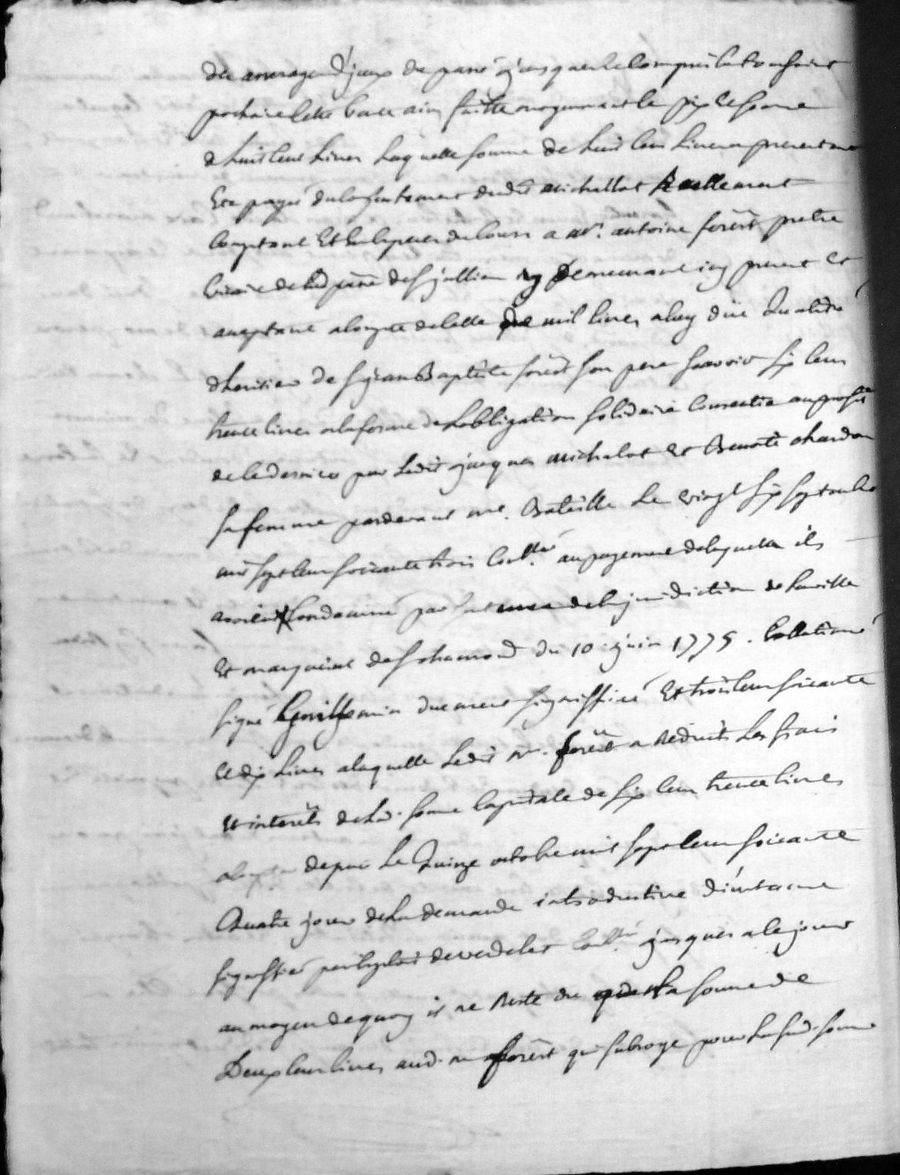 des arrerages d'yceux du passé jusques et compris la toussaint
prochaine cette vente ainsi faitte moyennant le prix et somme
de huit cent livres laquelle somme de huit cent livres a presentement
été payée du consentement dudit michallat Reellement
comptant et en especes de cours a mr. antoine forêst pretre
vicaire de lad. parr.e de st jullien y demeurant icy present et
acceptant a compte de celle de mil livres a luy düe en qualité
d'heritier de sr jean Baptiste forêst son pere scavoir six cent
trente livres a la forme de l'obligation solidaire consentie au profit
de ce dernier par ledit jacques michalat et Benoite chardon
sa femme pardevant me. Bataille le vingt six septembre
mil sept cent soixante trois cont.lée au payement de laquelle ils
avoient condamné par sentence de la jurisdiction de la ville
et marquisat de st chamond du 10. juin 1775. collationné
signé duement signiffiée et trois cent soixante
et dix livres a laquelle ledit mr. forêst a Reduits les frais
et interêts de lad. somme capitale de six cent trente livres
depuis le quinze octobre mil sept cent soixante
quatre jour de la demande introductive d'instance
signiffiée par exploit de verdelet cont.lé jusques a ce jour
au moyen de quoy il ne Reste du que la somme de
Deux cent livres aud. mr forêst qui subroge pour la sud. somme